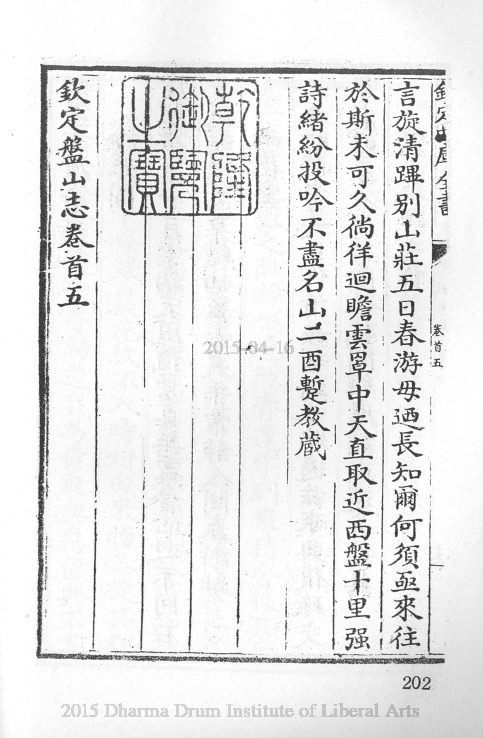 欽定四庫全書
卷首五
言旋清蹕别山莊五日春游毋迺長知爾何須亟來往
於斯未可久徜徉迴瞻雲罩中天直取近西盤十里强
詩緒紛投吟不盡名山二酉蹔教蔵
乾隆御覽之寶
欽定盤山志卷首五
2015-04-16
202
2015 Dharma Drum Institute of Liberal Arts